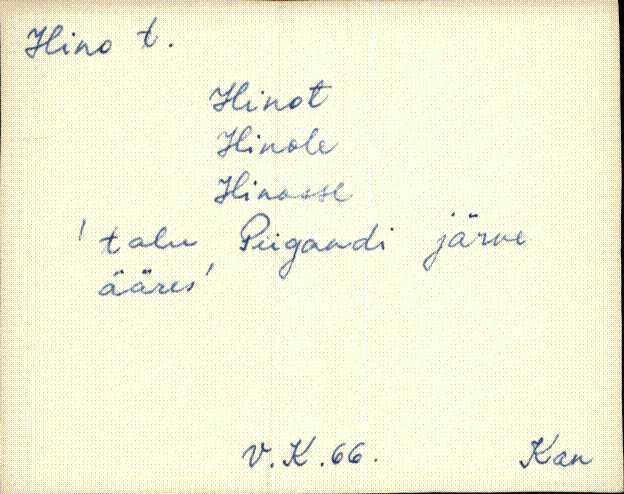 Hino t.
Hinot
Hinole
Hinosse
'talu Piigandi järve
ääres'
V.K.66. Kan